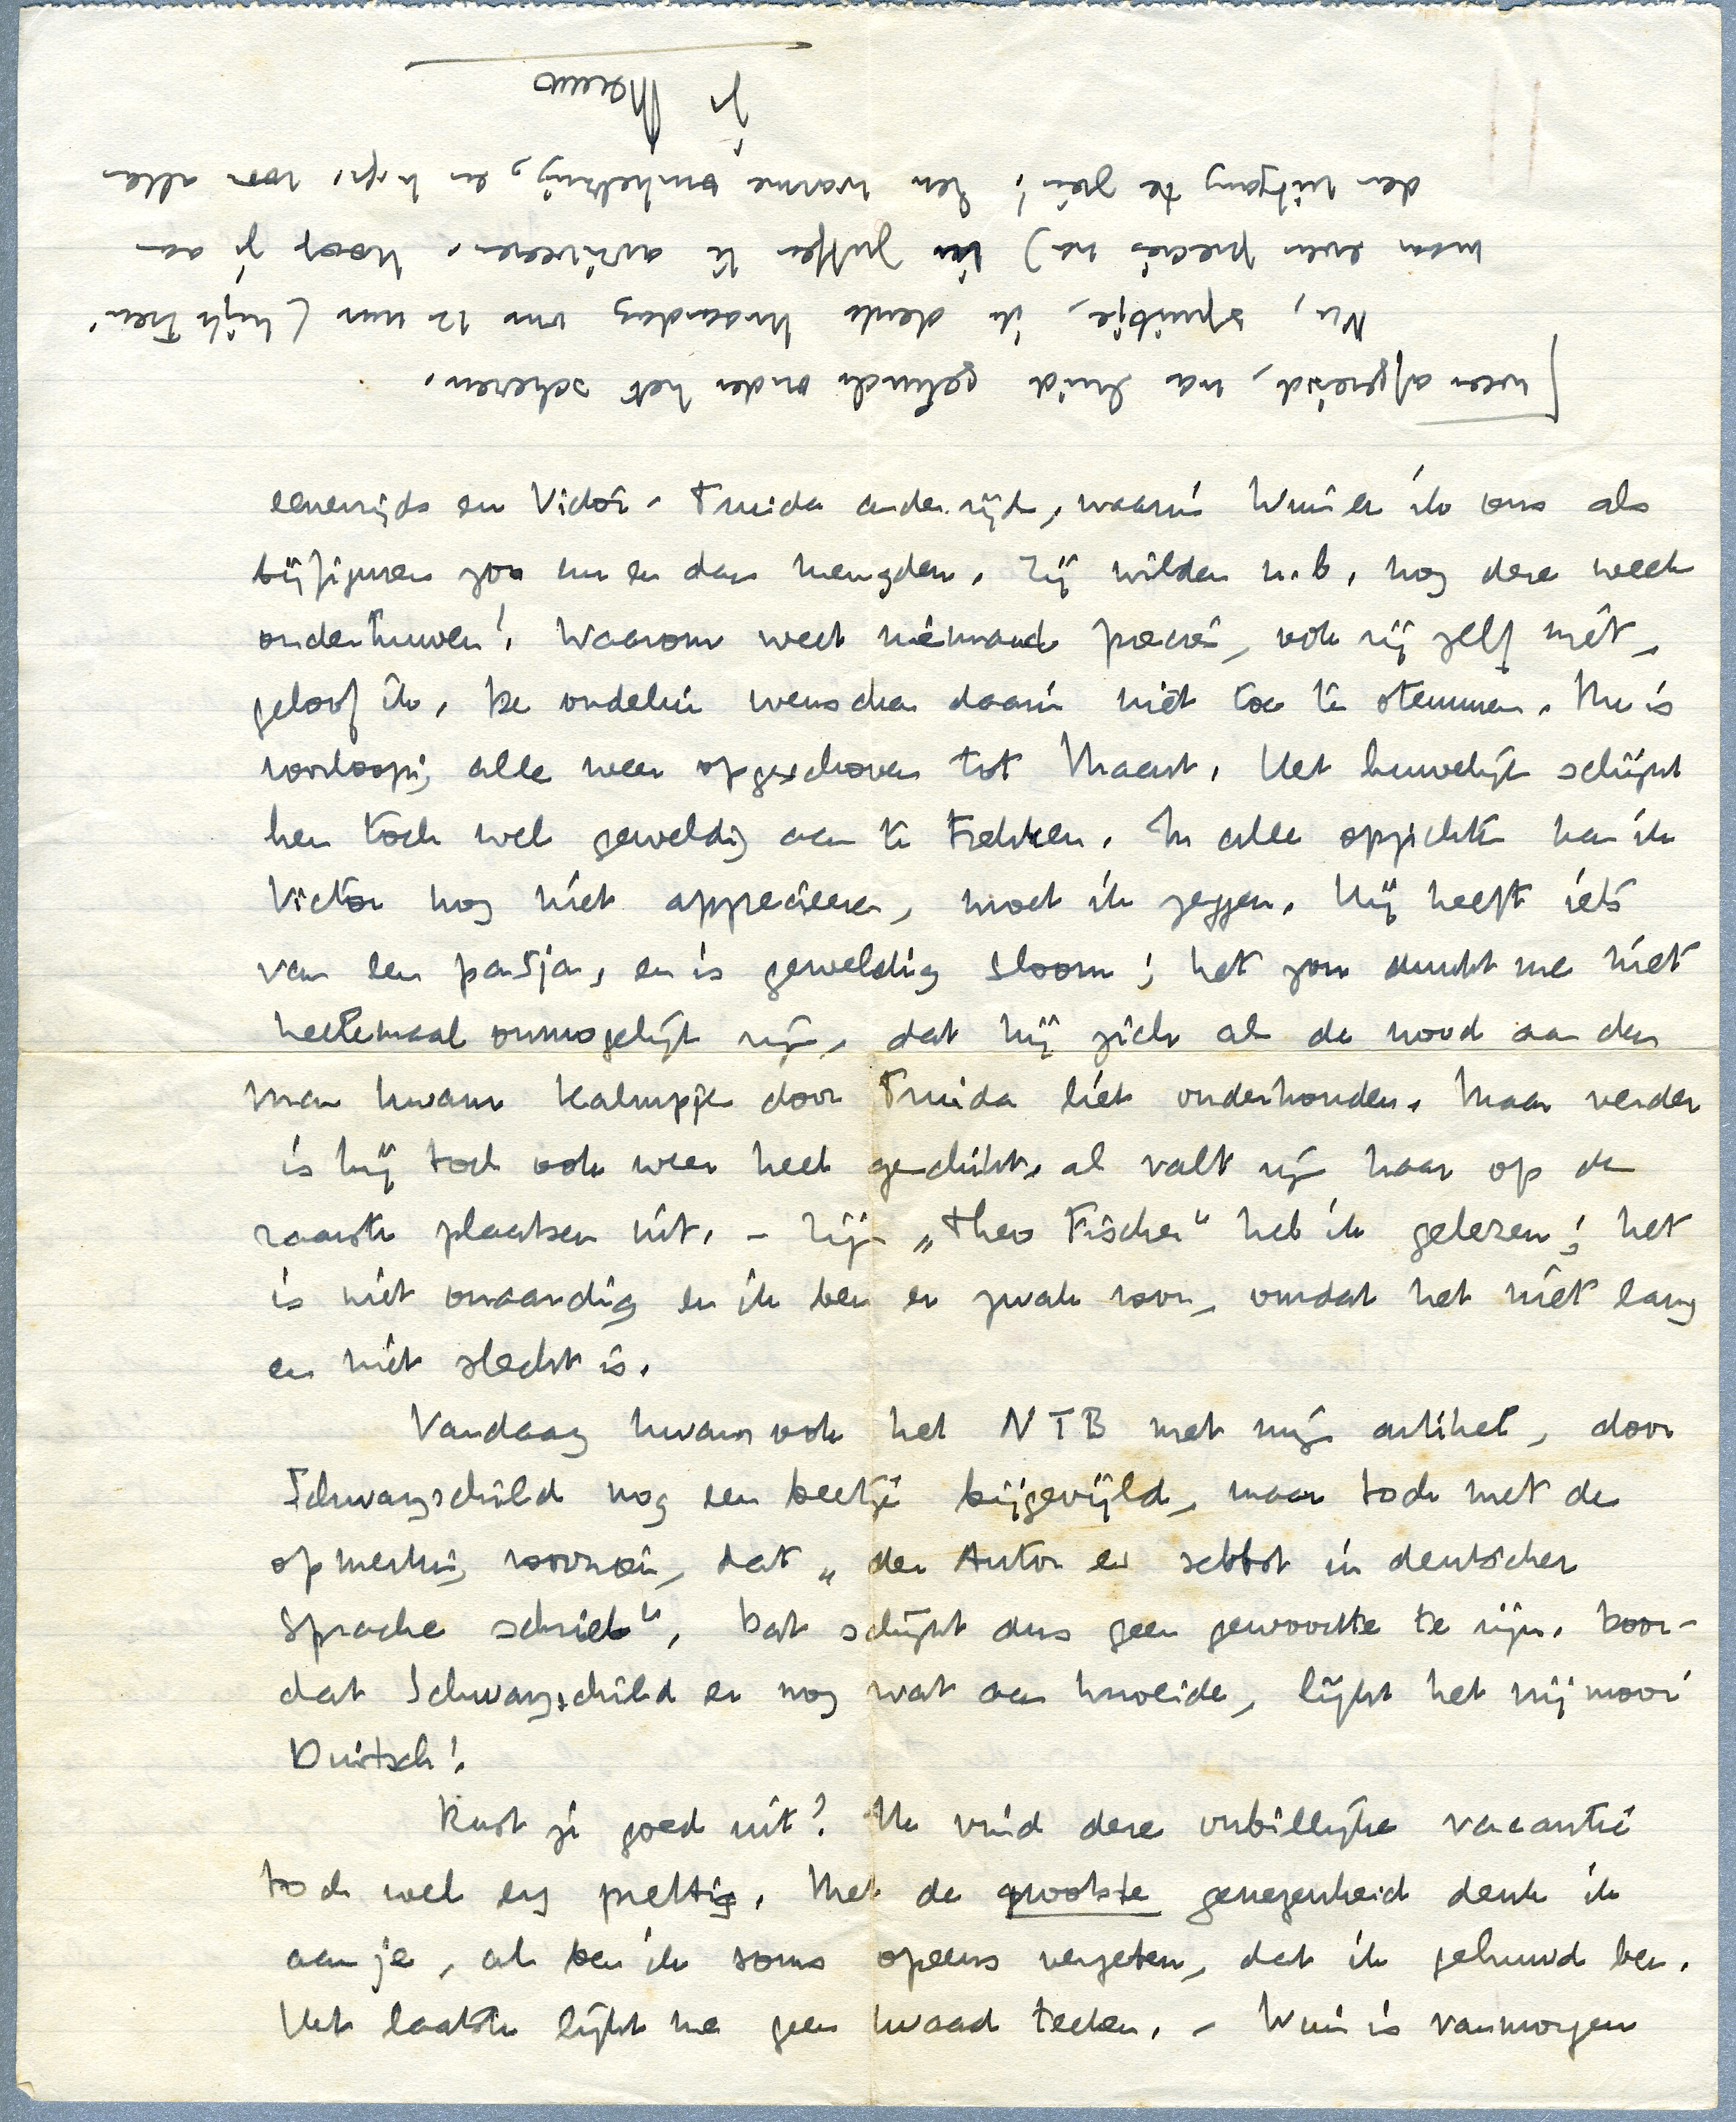 eenerzijds en Victor-Truida anderzijds, waarin Wim en ik ons als
bijfiguren zoo nu en dan mengden. Zij wilden n.b. nog deze week
ondertrouwen! Waarom weet niemand precies, ook zij zelf niet,
geloof ik. De ouders wenschen daarin niet toe te stemmen. Nu is
voorloopig alles weer opgeschoven tot Maart. Het huwelijk schijnt
hen toch wel geweldig aan te trekken. In alle opzichten kan ik
Victor nog niet apprecieeren, moet ik zeggen. Hij heeft iets
van een pasja, en is geweldig sloom; het zou dunkt me niet
heelemaal onmogelijk zijn, dat hij zich als de nood aan den
man kwam kalmpjes door Truida liet onderhouden. Maar verder
is hij toch ook weer heel geschikt, al valt zijn haar op de
raarste plaatsen uit. – Zijn „Theo Fischer" heb ik gelezen; het
is niet onaardig en ik ben er zwak voor, omdat het niet lang
en niet slecht is.
Vandaag kwam ook het NTB met mijn artikel, door
Schwarzschild nog een beetje bijgevijld, maar toch met de
opmerking voorzien, dat „der Autor es selbst in deutscher
Sprache schrieb". Dat schijnt dus geen gewoonte te zijn. Door-
dat Schwarzschild er nog wat aan knoeide, lijkt het mij mooi
Duitsch!
Rust je goed uit? Ik vind deze onbillijke vacantie
toch wel erg prettig. Met de grootste genegenheid denk ik
aan je, al ben ik soms opeens vergeten, dat ik gehuwd ben.
Het laatste lijkt me geen kwaad teeken. – Wim is vanmorgen
[weer afgereisd, na Freud gelezen onder het scheren.
Nu, spruitje, ik denk Maandag om 12 uur (kijk trein
maar even precies na) in Zutfen te arriveeren. Hoop je aan
den uitgang te zien! Een warme omhelzing, en h.gr. voor allen
je Menno